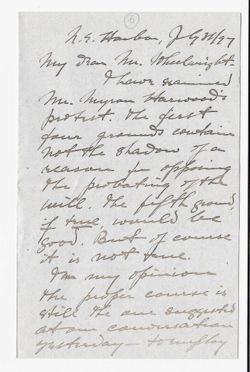 6
N.E. Harbor, Jly 31/97
My dear Mr. Wheelwright
I have examined
Mr. Myron Harwood's
protest. The first
four grounds contain
not the shadow of a
reason for opposing
the probating of the
will. The fifth ground,
if true would be
good. But of course
it is not true.
In my opinion
the proper course is
still the one suggested
at our conversation
yesterday — to employ